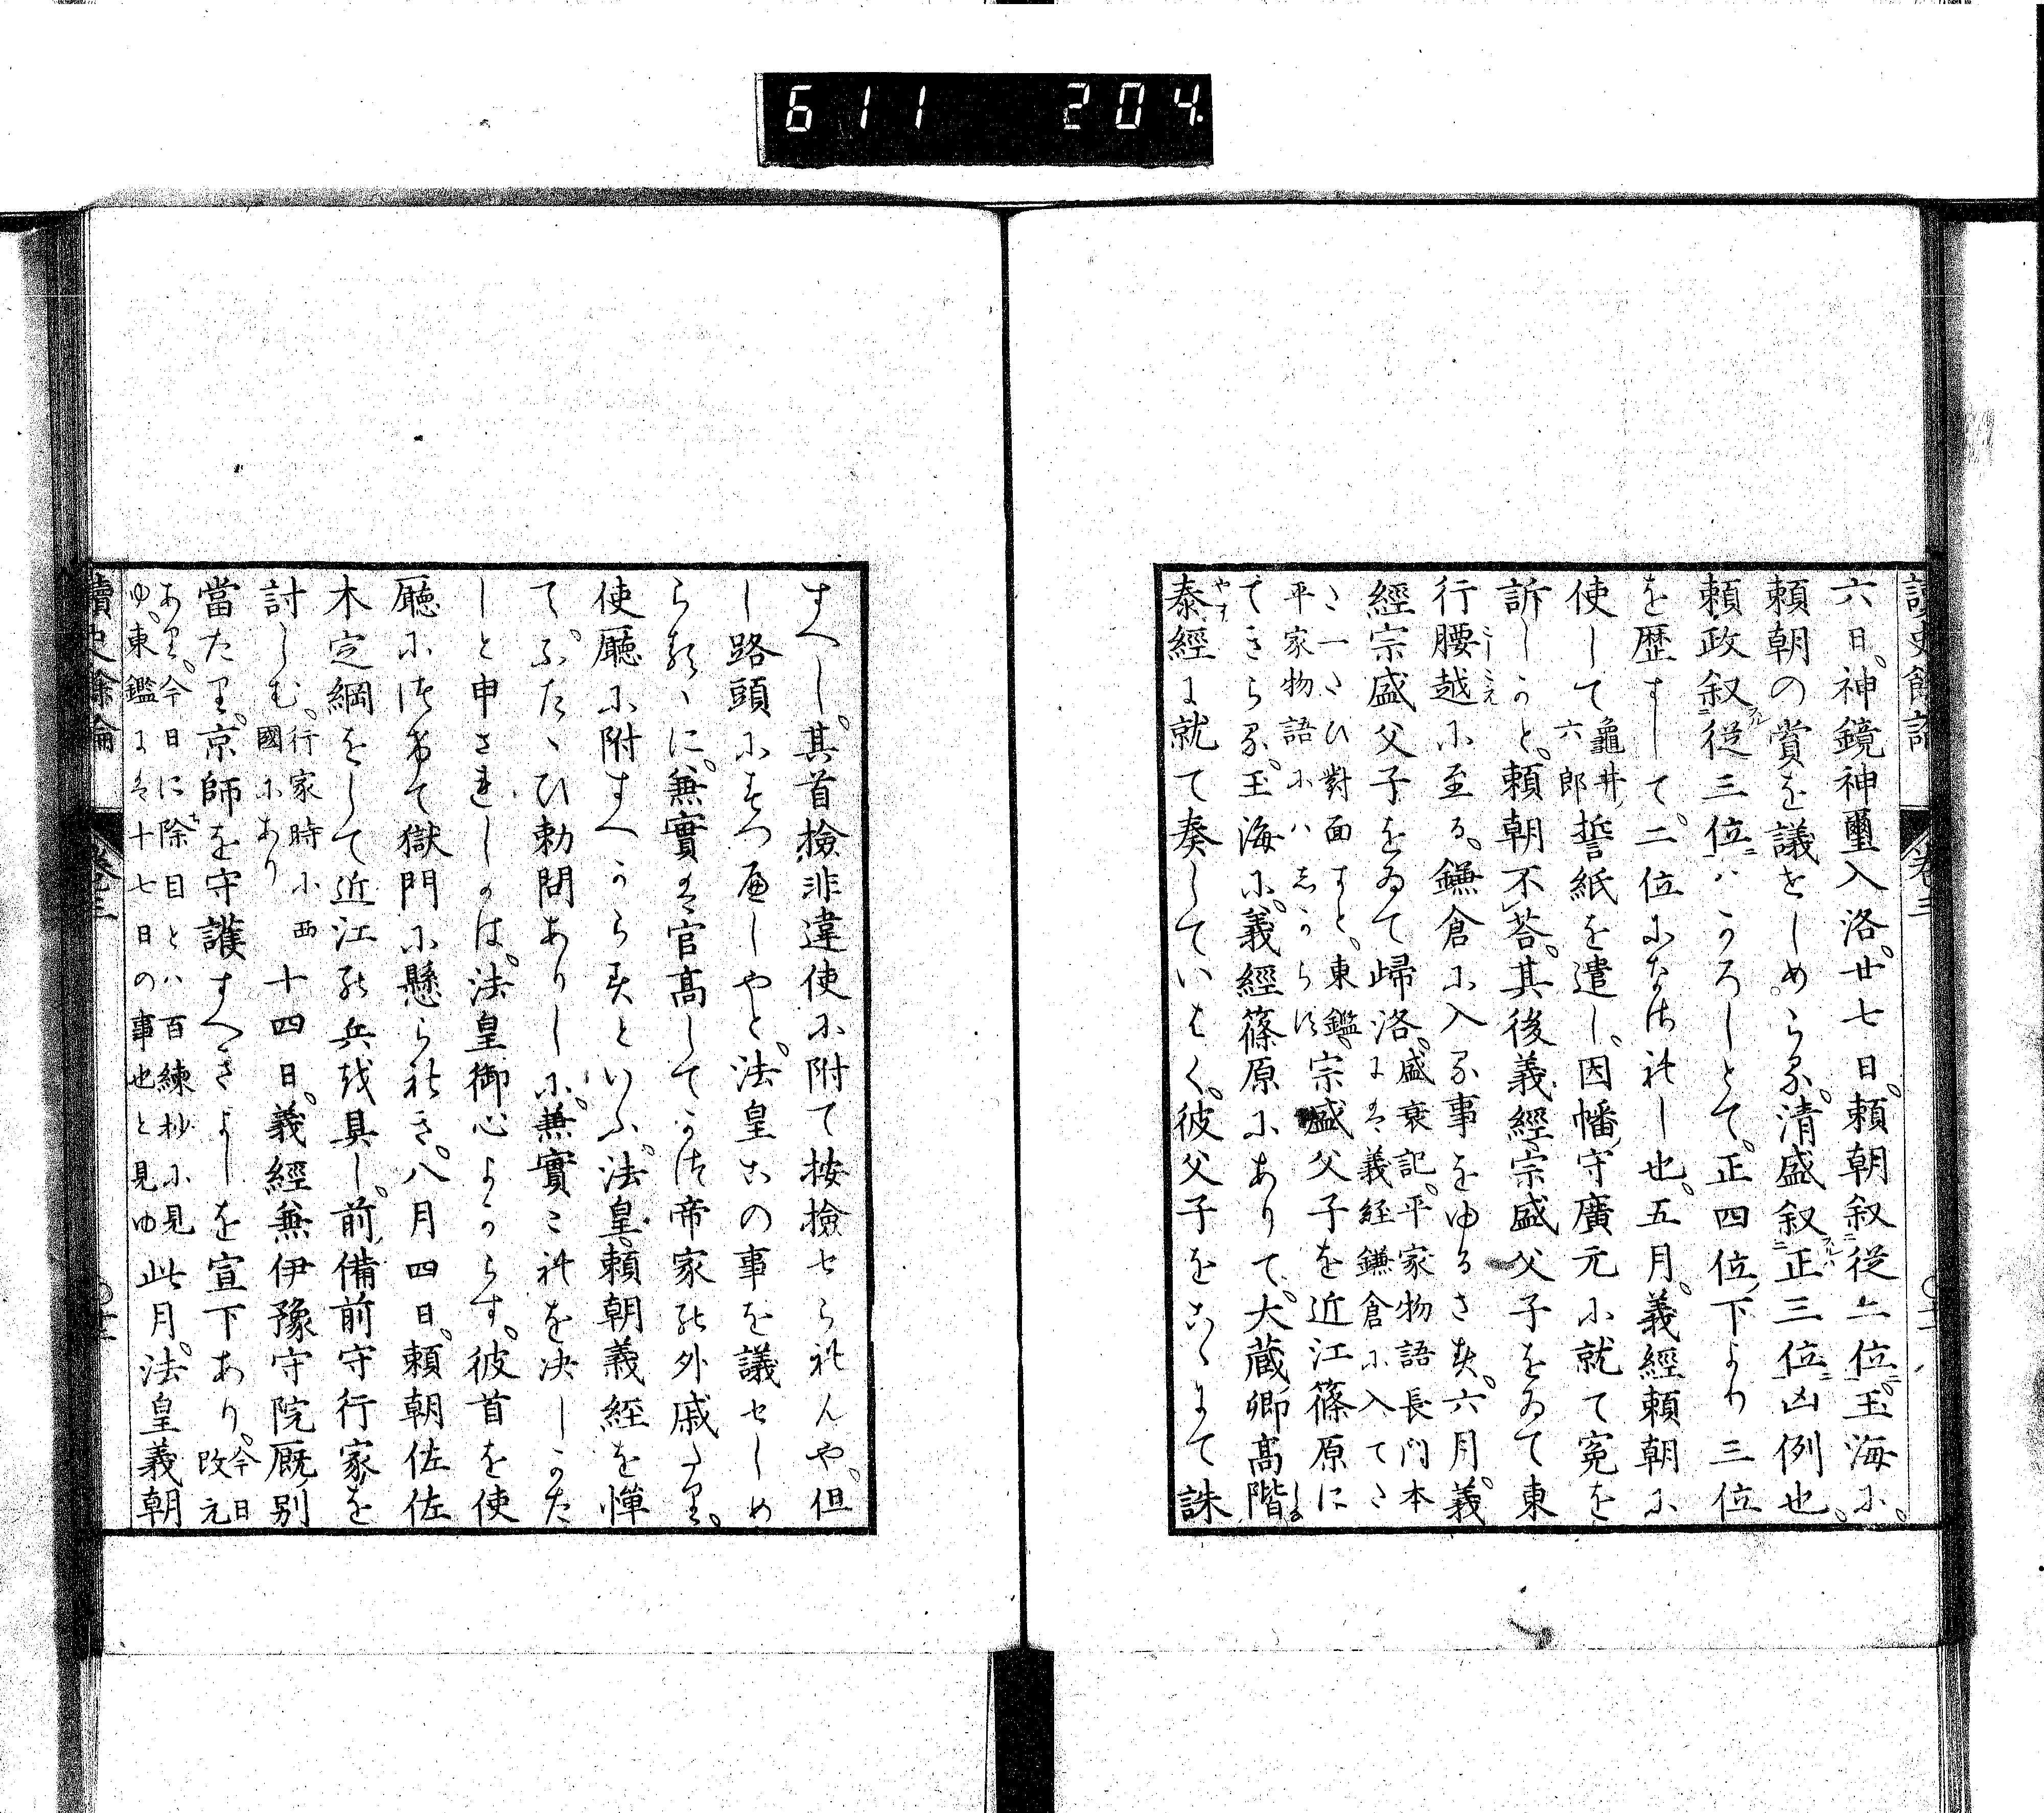 611 204
讀史餘論 卷三
六日。神鏡神璽入洛。廿七日。頼朝叙従二位。玉海に。
頼朝の賞を議せしめらる。清盛叙正三位凶例也。
頼政叙従三位ハよろしとて。正四位下より三位
を歴すして。二位になされし也。五月。義經頼朝に
使して龜井六郎誓紙を遣し。因幡守廣元に就て寃を
訴しかと。頼朝不荅。其後義經宗盛父子をゐて東
行腰越に至る。鎌倉に入る事をゆるさす。六月。義
經宗盛父子をゐて歸洛。盛衰記。平家物語長門本にハ義経鎌倉に入てさ
さ一たひ對面すと。東鑑。平家物語にハしからす。宗盛父子を近江篠原に
てきらる。玉海に。義經篠原にありて。大蔵卿髙階
泰經に就て奏していはく。彼父子をこゝにて誅
すへし。其首撿非違使に附て按撿せられんや。但
し路頭にすつへしやと。法皇此の事を議せしめ
らるゝに。兼實は官髙してかつ帝家の外戚たり。
使廳に附すへからすといふ。法皇。頼朝義經を憚
てふたゝひ勅問ありしに。兼實これを决しかた
しと申されしかは。法皇御心よからす。彼首を使
廳につけて獄門に懸られき。八月四日。頼朝佐佐
木定綱をして近江の兵を具し。前備前守行家を
討しむ。行家時に西國にあり十四日。義經兼伊豫守院厩別
當たり。京師を守護すへきよしを宣下あり。今日改元
あり。今日に除目とハ百練抄に見ゆ。東鑑には十七日の事也と見ゆ此月。法皇義朝
讀史餘論 卷三